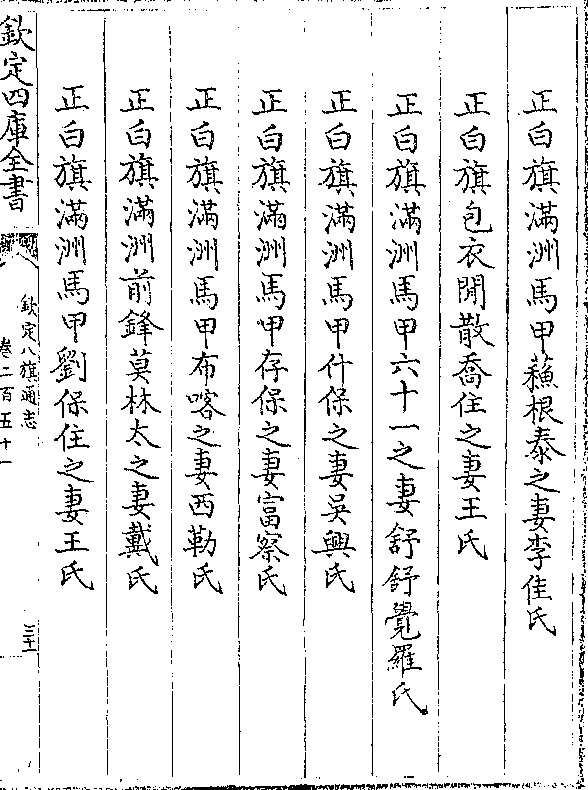 正白旗滿洲馬甲蘓根泰之妻李佳氏
正白旗包衣閒散喬住之妻王氏
正白旗滿洲馬甲六十一之妻舒舒覺羅氏
正白旗滿洲馬甲什保之妻吳興氏
正白旗滿洲馬甲存保之妻富察氏
正白旗滿洲馬甲布喀之妻西勒氏
正白旗滿洲前鋒莫林太之妻戴氏
正白旗滿洲馬甲劉保住之妻王氏
欽定四庫全書
欽定八旗通志
卷二百五十一